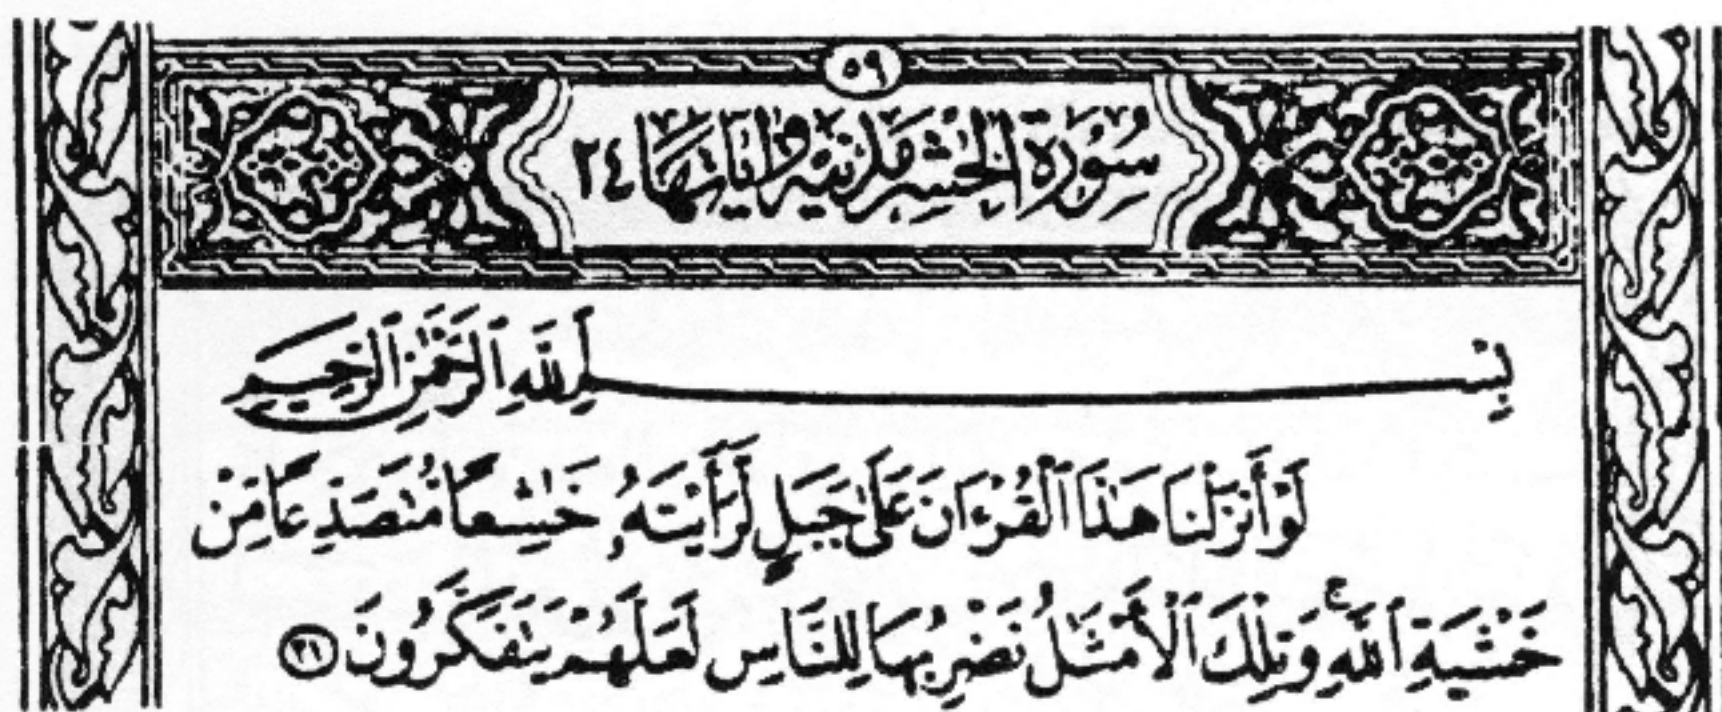 ٥٩
سُورَةُ الحَشْرِ مَدَنِيَّةٌ وَآيَاتُهَا ٢٤
بِسْمِ ٱللَّهِ ٱلرَّحْمَٰنِ ٱلرَّحِيمِ
لَوْ أَنزَلْنَا هَٰذَا ٱلْقُرْءَانَ عَلَىٰ جَبَلٍ لَّرَأَيْتَهُۥ خَٰشِعًا مُّتَصَدِّعًا مِّنْ
خَشْيَةِ ٱللَّهِ ۚ وَتِلْكَ ٱلْأَمْثَٰلُ نَضْرِبُهَا لِلنَّاسِ لَعَلَّهُمْ يَتَفَكَّرُونَ ٢١